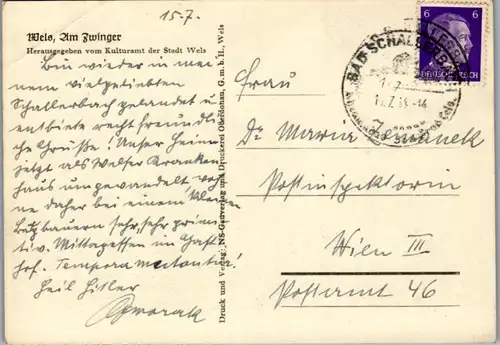 15.7.
Wels, Am Zwinger
Herausgegeben vom Kulturamt der Stadt Wels
Bin wieder in mei-
nem vielgeliebten
Schallerbach gelandet u.
entbiete recht freundli-
che Grüße! Unser Heim
jetzt als Welser Kranken
haus umgewandelt, woh
ne daher bei einem kleinen
bauern sehr, sehr primi-
tiv. Mittagessen im Gast
hof. Tempora mutantur!
Heil Hitler
Druck und Verlag: NS-Gauverlag und Druckerei Oberdonau, G. m. b. H., Wels
6 6
DEUTSCHES REICH
BAD SCHALLERBACH
Frau
Dr. Maria
Postinspektorin
Wien III
Postamt 46